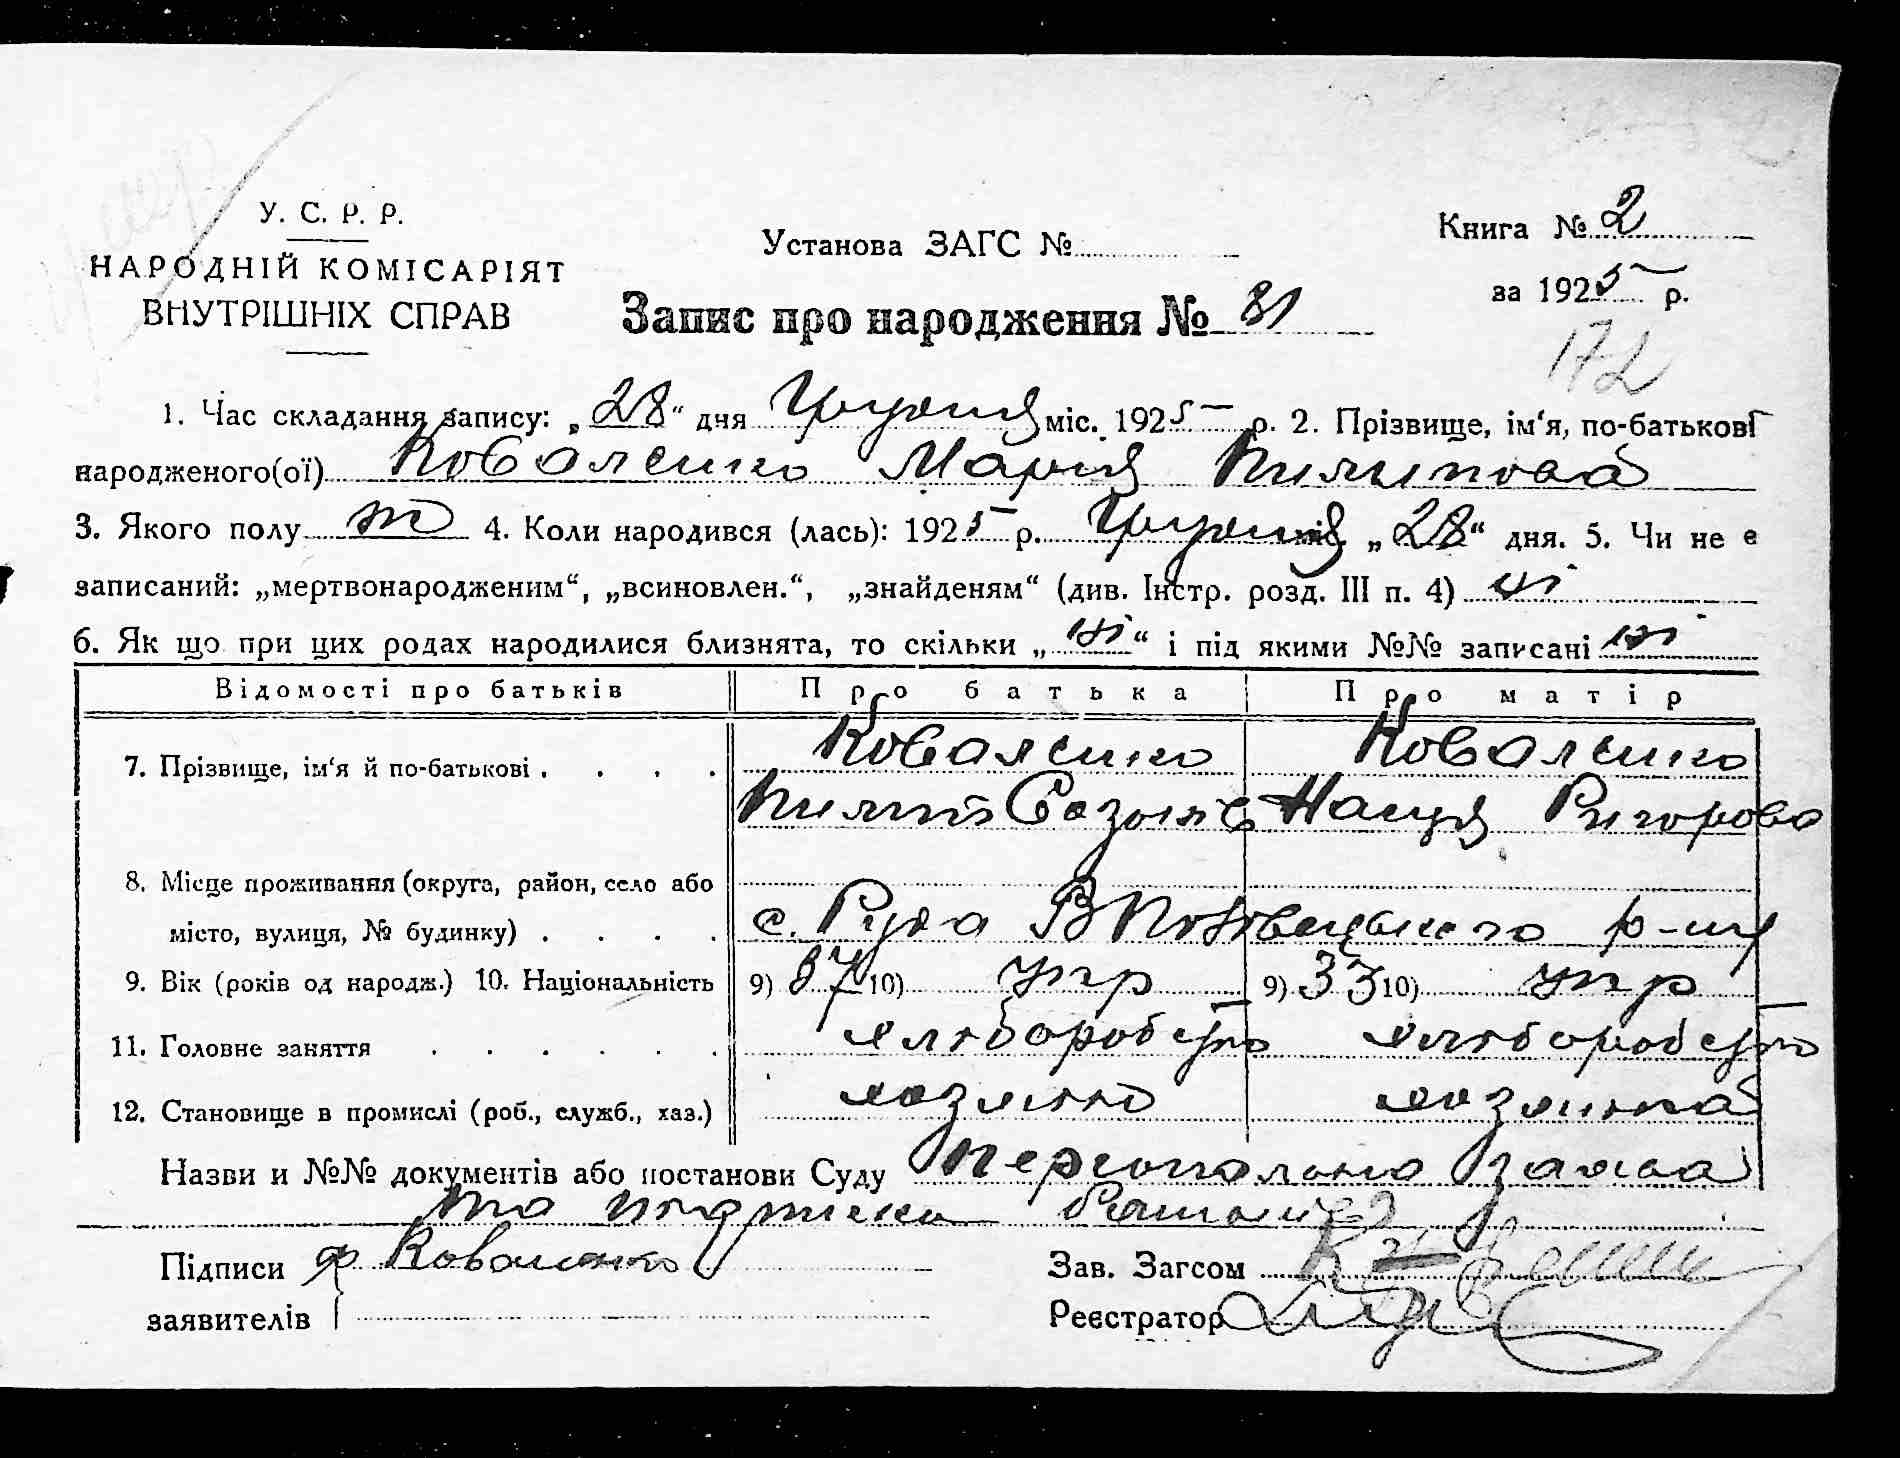 У. С. Р. Р.
НАРОДНІЙ КОМІСАРІЯТ
ВНУТРІШНІХ СПРАВ
Установа ЗАГС №
Книга № 2
за 1925 р.
Запис про народження № 81
172
1. Час складання запису: „28“ дня Грудня міс. 1925 р. 2. Прізвище, ім‘я, по-батькові
народженого(ої) Коваленко Марія Пилипова
3. Якого полу ж 4. Коли народився (лась): 1925 р. Грудня міс. „28“ дня. 5. Чи не є
записаний: „мертвонародженим“, „всиновлен.“, „знайденям“ (див. Інстр. розд. III п. 4) ні
6. Як що при цих родах народилися близнята, то скільки „ні“ і під якими №№ записані ні
Відомості про батьків Про батька Про матір
7. Прізвище, ім‘я й по-батькові . . . . Коваленко Коваленко
Пилип Созонів Настя Ригорова
8. Місце проживання (округа, район, село або
місто, вулиця, № будинку) . . . . с. Руда В р-ну
9. Вік (років од народж.) 10. Національність 9) 37 10) укр 9) 33 10) укр
11. Головне заняття . . . . . . хлібороб хлібороб
12. Становище в промислі (роб., служб., хаз.) хазяїн хазяйка
Назви и №№ документів або постанови Суду Персональна заява
та
Підписи Ф Коваленко
заявителів
Зав. Загсом
Реєстратор